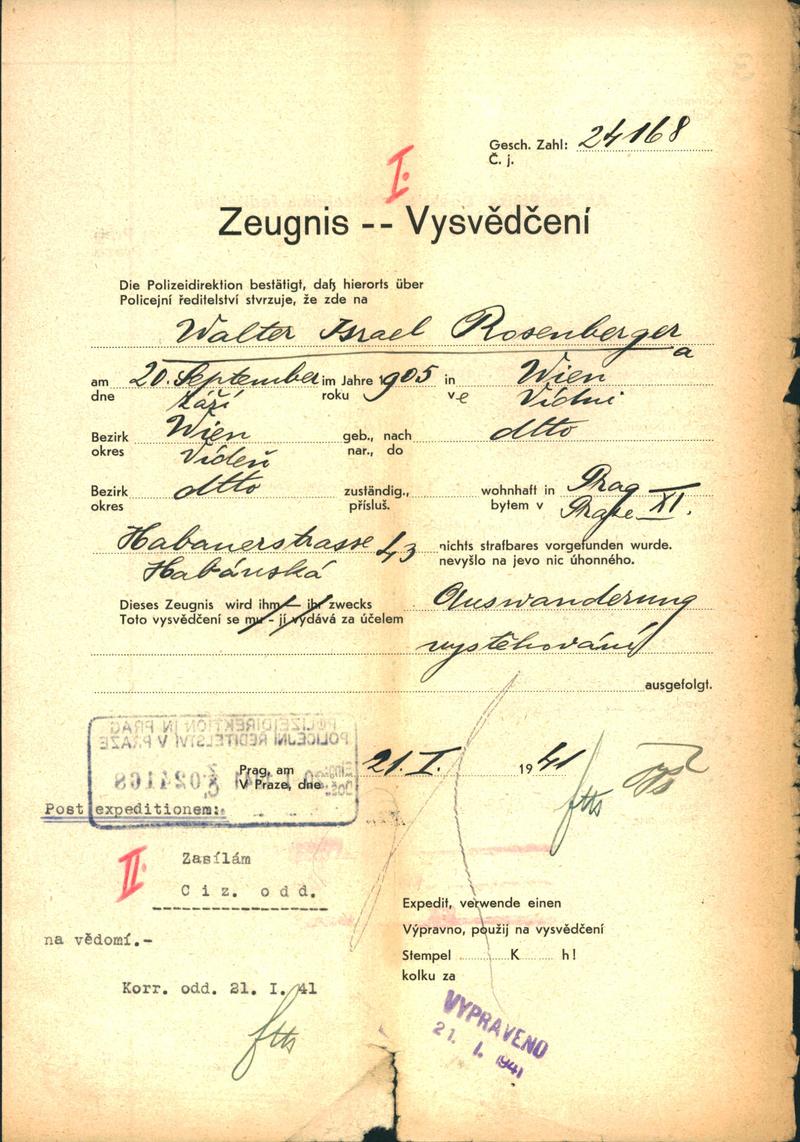 Gesch. Zahl: 24168
Č. j.
I.
Zeugnis -- Vysvědčení
Die Polizeidirektion bestätigt, daß hierorts über
Policejní ředitelství stvrzuje, že zde na
Walter Israel Rosenberger
a
am 20. September im Jahre 1905 in Wien
dne září roku ve Vídni
Bezirk Wien geb., nach dtto
okres Vídeň nar., do
Bezirk dtto zuständig., wohnhaft in Prag XI.
okres přísluš. bytem v Praze
Habanerstrasse 43 nichts strafbares vorgefunden wurde.
Habánská nevyšlo na jevo nic úhonného.
Dieses Zeugnis wird ihm — ihr zwecks Auswanderung
Toto vysvědčení se mu - jí vydává za účelem
vystěhování
ausgefolgt.
POLIZEIDIREKTION IN PRAG
POLICEJNÍ ŘEDITELSTVÍ V PRAZE
024168
Prag, am 21. I. 1941
V Praze, dne
Post expeditionem:
II.
Zasílám
Ciz. odd.
na vědomí.-
Korr. odd. 21. I. 41
Expedit, verwende einen
Výpravno, použij na vysvědčení
Stempel K h!
kolku za
VYPRAVENO
21. I. 1941